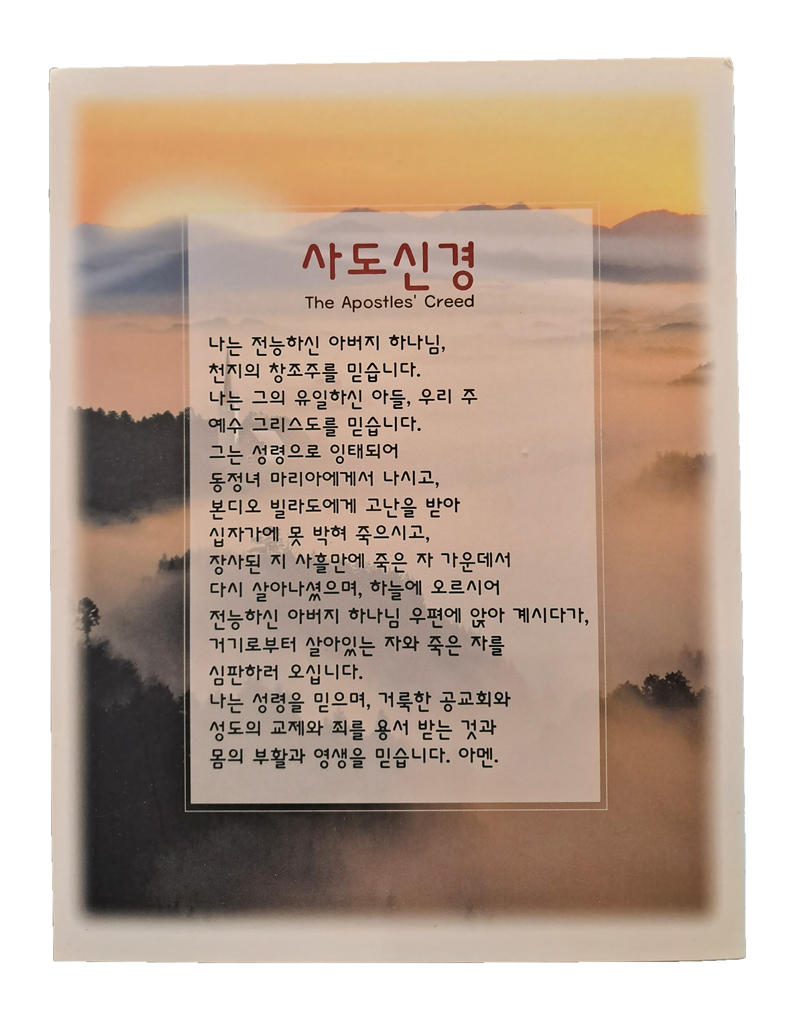 사도신경
The Apostles' Creed
나는 전능하신 아버지 하나님,
천지의 창조주를 믿습니다.
나는 그의 유일하신 아들, 우리 주
예수 그리스도를 믿습니다.
그는 성령으로 잉태되어
동정녀 마리아에게서 나시고,
본디오 빌라도에게 고난을 받아
십자가에 못 박혀 죽으시고,
장사된 지 사흘만에 죽은 자 가운데서
다시 살아나셨으며, 하늘에 오르시어
전능하신 아버지 하나님 우편에 앉아 계시다가,
거기로부터 살아있는 자와 죽은 자를
심판하러 오십니다.
나는 성령을 믿으며, 거룩한 공교회와
성도의 교제와 죄를 용서 받는 것과
몸의 부활과 영생을 믿습니다. 아멘.